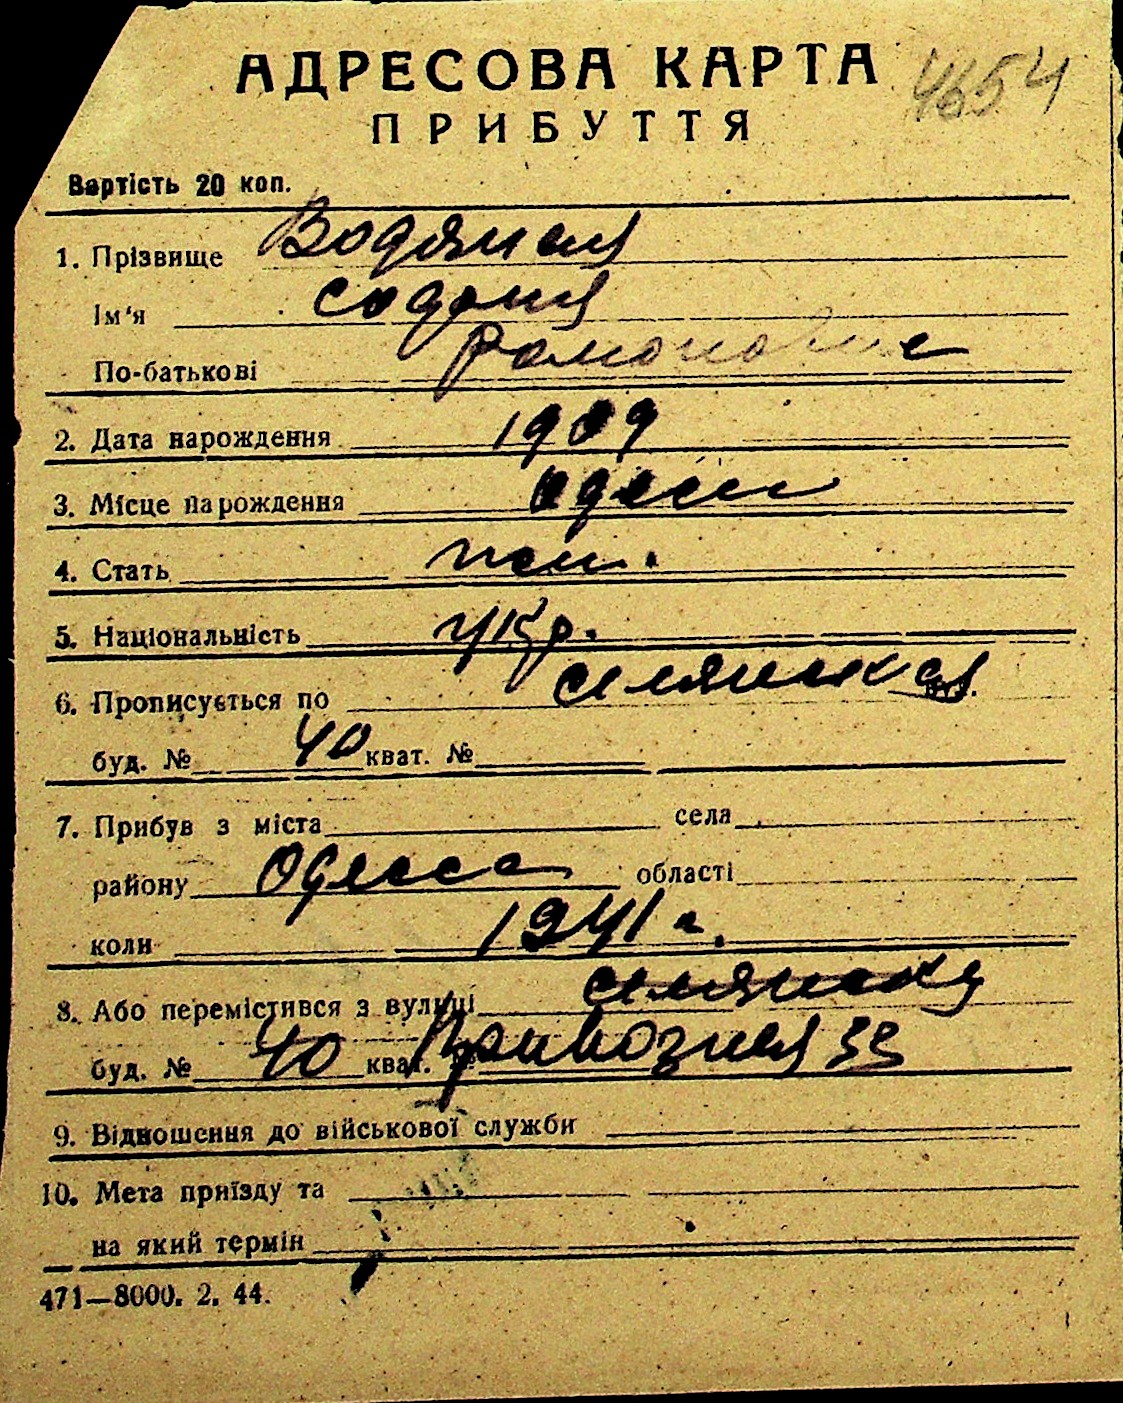 АДРЕСОВА КАРТА 4654
ПРИБУТТЯ
Вартість 20 коп.
1. Прізвище Водяная
Ім'я София
По-батькові Романовна
2. Дата народження 1909
3. Місце народження Одесса
4. Стать жен.
5. Національність укр.
6. Прописується по вул.
буд. № 40 кват. №
7. Прибув з міста села
району Одесса області
коли 1941 г.
8. Або перемістився з вулиці
буд. № 40 кват. № Привозная 33
9. Відношення до військової служби
10. Мета приїзду та
на який термін
471—8000. 2. 44.